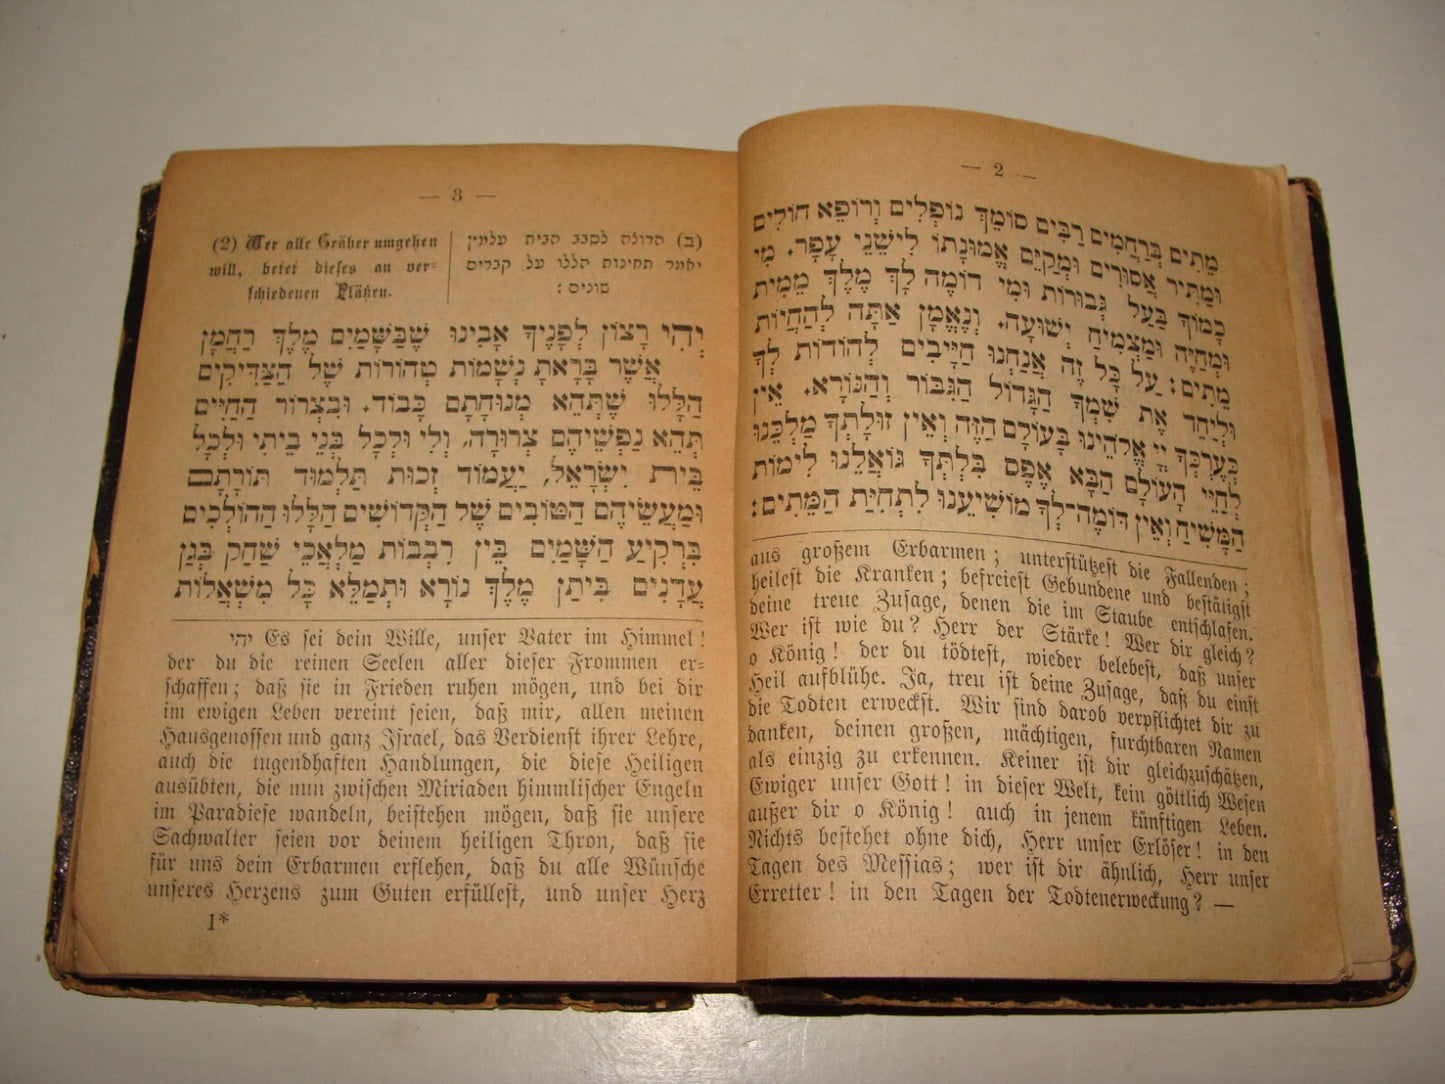 — 2 —
מֵתִים בְּרַחֲמִים רַבִּים סוֹמֵךְ נוֹפְלִים וְרוֹפֵא חוֹלִים
וּמַתִּיר אֲסוּרִים וּמְקַיֵּם אֱמוּנָתוֹ לִישֵׁנֵי עָפָר. מִי
כָמוֹךָ בַּעַל גְּבוּרוֹת וּמִי דוֹמֶה לָּךְ מֶלֶךְ מֵמִית
וּמְחַיֶּה וּמַצְמִיחַ יְשׁוּעָה. וְנֶאֱמָן אַתָּה לְהַחֲיוֹת
מֵתִים: עַל כָּל זֶה אֲנַחְנוּ חַיָּיבִים לְהוֹדוֹת לְךָ
וּלְיַחֵד אֶת שִׁמְךָ הַגָּדוֹל הַגִּבּוֹר וְהַנּוֹרָא. אֵין
כְּעֶרְכְּךָ יְיָ אֱלֹהֵינוּ בָּעוֹלָם הַזֶּה וְאֵין זוּלָתְךָ מַלְכֵּנוּ
לְחַיֵּי הָעוֹלָם הַבָּא אֶפֶס בִּלְתְּךָ גּוֹאֲלֵנוּ לִימוֹת
הַמָּשִׁיחַ וְאֵין דּוֹמֶה־לְּךָ מוֹשִׁיעֵנוּ לִתְחִיַּת הַמֵּתִים:
aus großem Erbarmen; unterstützest die Fallenden;
heilest die Kranken; befreiest Gebundene und bestätigst
deine treue Zusage, denen die im Staube entschlafen.
Wer ist wie du? Herr der Stärke! Wer dir gleich?
o König! der du tödtest, wieder belebest, daß unser
Heil aufblühe. Ja, treu ist deine Zusage, daß du einst
die Todten erweckst. Wir sind darob verpflichtet dir zu
danken, deinen großen, mächtigen, furchtbaren Namen
als einzig zu erkennen. Keiner ist dir gleichzuschätzen,
Ewiger unser Gott! in dieser Welt, kein göttlich Wesen
außer dir o König! auch in jenem künftigen Leben.
Nichts bestehet ohne dich, Herr unser Erlöser! in den
Tagen des Messias; wer ist dir ähnlich, Herr unser
Erretter! in den Tagen der Todtenerweckung? —
— 3 —
(ב) הרוצה לסבב הבית עלמין
יאמר תחינות הללו על קברים
שונים :
(2) Wer alle Gräber umgehen
will, betet dieses an ver=
schiedenen Plätzen.
יְהִי רָצוֹן לְפָנֶיךָ אָבִינוּ שֶׁבַּשָּׁמַיִם מֶלֶךְ רַחֲמָן
אֲשֶׁר בָּרָאתָ נְשָׁמוֹת טְהוֹרוֹת שֶׁל הַצַּדִּיקִים
הַלָּלוּ שֶׁתְּהֵא מְנוּחָתָם כָּבוֹד. וּבִצְרוֹר הַחַיִּים
תְּהֵא נַפְשֵׁיהֶם צְרוּרָה, וְלִי וּלְכָל בְּנֵי בֵיתִי וּלְכָל
בֵּית יִשְׂרָאֵל, יַעֲמוֹד זְכוּת תַּלְמוּד תּוֹרָתָם
וּמַעֲשֵׂיהֶם הַטּוֹבִים שֶׁל הַקְּדוֹשִׁים הַלָּלוּ הַהוֹלְכִים
בִּרְקִיעַ הַשָּׁמַיִם בֵּין רִבְבוֹת מַלְאֲכֵי שַׁחַק בְּגַן
עֲדָנִים בִּיתַן מֶלֶךְ נוֹרָא וּתְמַלֵּא כָּל מִשְׁאֲלוֹת
יהי Es sei dein Wille, unser Vater im Himmel!
der du die reinen Seelen aller dieser Frommen er=
schaffen; daß sie in Frieden ruhen mögen, und bei dir
im ewigen Leben vereint seien, daß mir, allen meinen
Hausgenossen und ganz Israel, das Verdienst ihrer Lehre,
auch die tugendhaften Handlungen, die diese Heiligen
ausübten, die nun zwischen Miriaden himmlischer Engeln
im Paradiese wandeln, beistehen mögen, daß sie unsere
Sachwalter seien vor deinem heiligen Thron, daß sie
für uns dein Erbarmen erflehen, daß du alle Wünsche
unseres Herzens zum Guten erfüllest, und unser Herz
1*